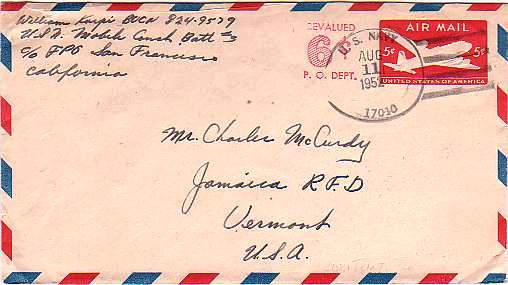 William Karpi BUCN 824-9579
U.S.N. Mobile Const. Batt #3
c/o FPO San Francisco
California
REVALUED
6¢
P. O. DEPT.
U.S. NAVY
AUG
11
1952
17040
AIR MAIL
5¢ 5¢
UNITED STATES OF AMERICA
Mr. Charles McCurdy
Jamaica R.F.D
Vermont
U.S.A.